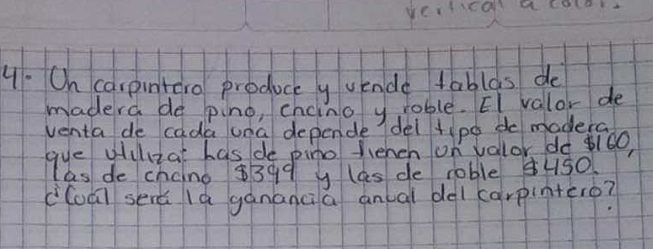 vertical a color.
4. Un carpintero produce y vende tablas de
madera de pino, encino y roble. El valor de
venta de cada una depende del tipo de madera
que utiliza: las de pino tienen un valor de $160,
las de encino $399 y las de roble $450.
¿Cuál será la ganancia anual del carpintero?